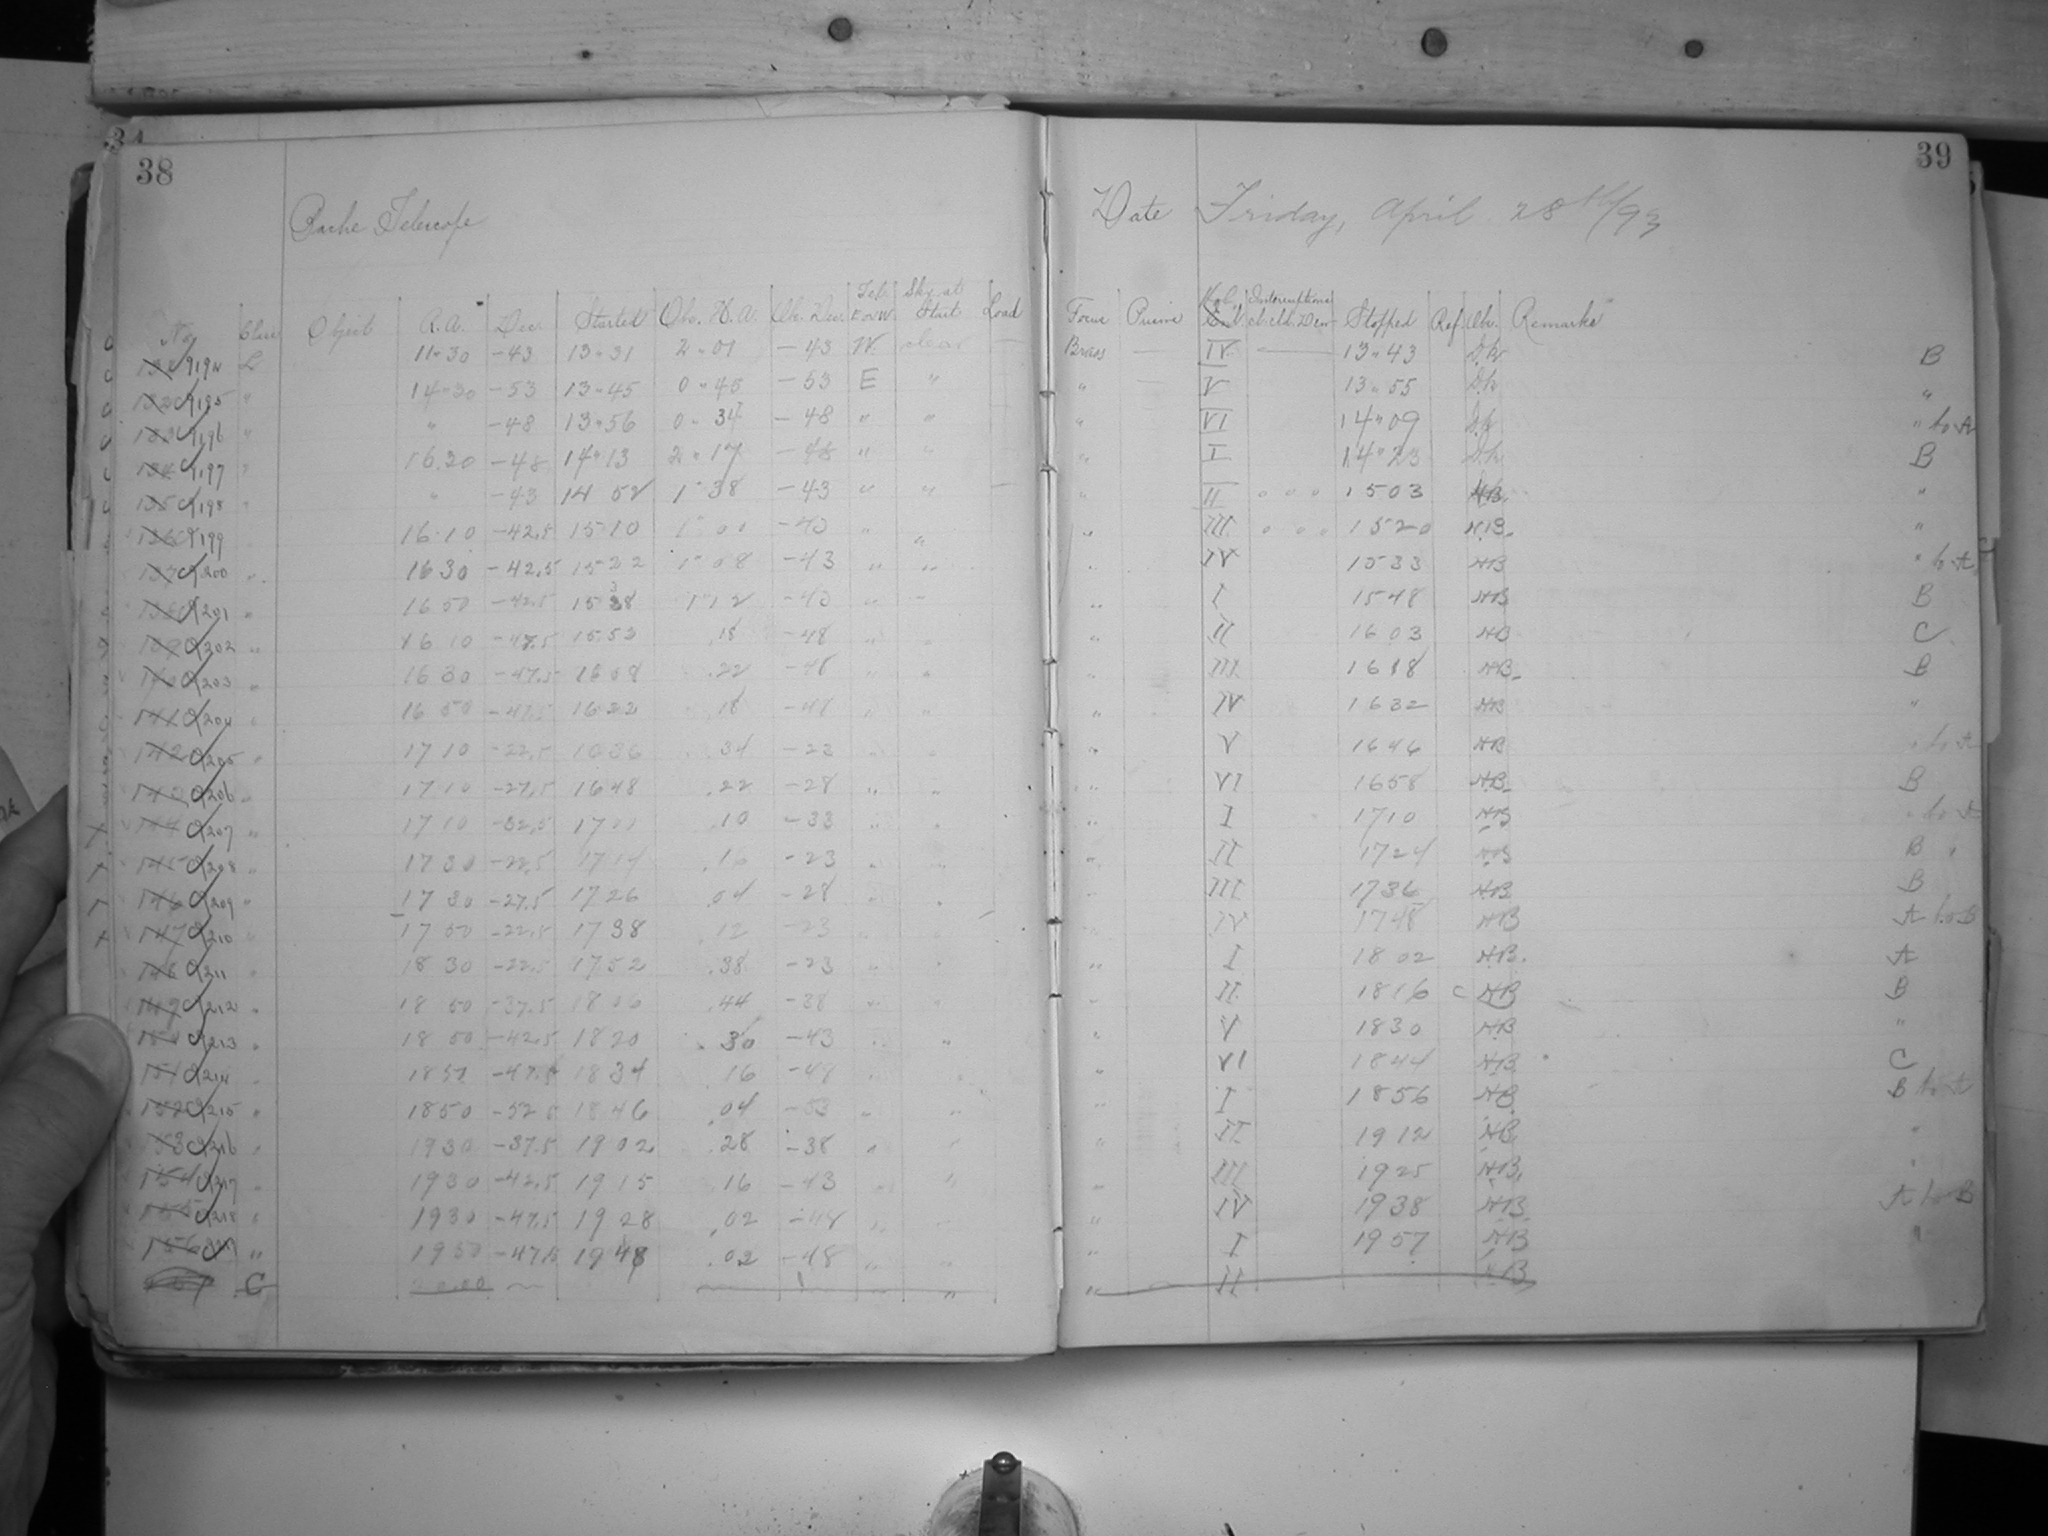 38
Bache Telescope
No. Class Object R.A. Dec. Started Obs. H.A. Obs. Dec. Tel. E or W Sky at Start Load
9194 L 11 30 -43 13 31 2 01 -43 W. clear —
9195 " 14 30 -53 13 45 0 45 -53 E "
9196 " " -48 13 56 0 34 -48 " "
9197 " 16 30 -48 14 13 2 17 -48 " "
9198 " " -43 14 52 1 38 -43 " " —
9199 16 10 -42.5 15 10 1 00 -43 " "
9200 " 16 30 -42.5 15 22 1 08 -43 " "
9201 " 16 50 -42.5 15 38 1 12 -43 "
9202 " 16 10 -47.5 15 53 .18 -48 " "
9203 " 16 30 -47.5 16 08 .22 -48 " "
9204 " 16 50 -47.5 16 22 .18 -48 " "
9205 " 17 10 -22.5 16 36 .34 -23 " "
9206 " 17 10 -27.5 16 48 .22 -28 " "
9207 " 17 10 -32.5 17 .10 -33 " "
9208 " 17 30 -22.5 17 14 .16 -23 " "
9209 " 17 30 -27.5 17 26 .04 -28 " "
9210 " 17 50 -22.5 17 38 .12 -23
9211 " 18 30 -22.5 17 52 .38 -23 " "
9212 " 18 50 -37.5 18 06 .44 -38 " "
9213 " 18 50 -42.5 18 20 .30 -43 " "
9214 " 18 50 -47.5 18 34 .16 -48 " "
9215 " 18 50 -52.5 18 46 .04 -53 " "
9216 " 19 30 -37.5 19 02 .28 -38 " "
9217 " 19 30 -42.5 19 15 .16 -43 " "
9218 " 19 30 -47.5 19 28 .02 -48 " "
" 19 50 -47.5 19 48 .02 -48 " "
C "
39
Date Friday, April 28th/93
Focus Prisms Interruptions Stopped Ref. Obs. Remarks
Brass — IV — 13 43 B
" — V 13 55 "
" VI 14 09 " to A
" I 14 23 B
" II 0 0 0 15 03 H.B. "
" III 0 0 0 15 20 H.B. "
" IV 15 33 HB " to A
" I 15 48 HB B
" II 16 03 HB C
" III 16 18 HB B
" IV 16 32 HB "
" V 16 46 HB " to A
" VI 16 58 HB B
" I 17 10 HB " to A
" II 17 24 HB B
" III 17 36 HB B
" IV 17 48 HB A to B
" I 18 02 HB. A
" II 18 16 C HB B
" V 18 30 HB "
" VI 18 44 HB C
" I 18 56 HB B to A
" II 19 12 HB "
" III 19 25 HB. "
" IV 19 38 HB A to B
" I 19 57 HB "
" II HB